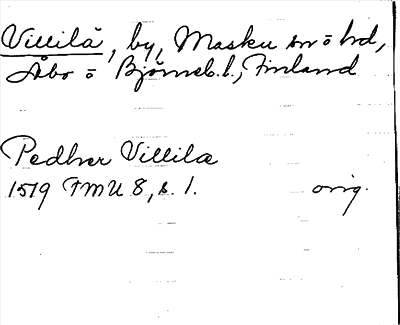 Villilä, by, Masku sn o hd,
Åbo o Björneb. l., Finland
Pedher Villilæ
1519 FMU 8, s. 1. orig.